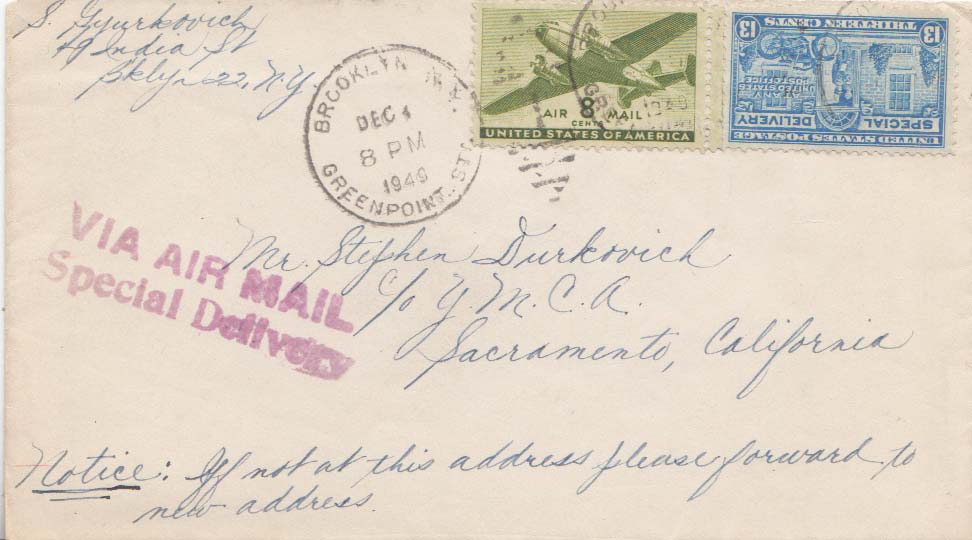 S. Gyurkovich
79 India St
Bklyn 22, N.Y.
BROOKLYN N.Y.
DEC 4
8 PM
1946
GREENPOINT STA.
AIR 8 MAIL
CENTS
UNITED STATES OF AMERICA
UNITED STATES POSTAGE
SPECIAL
DELIVERY
AT ANY
UNITED STATES
POST OFFICE
13 THIRTEEN CENTS 13
VIA AIR MAIL
Special Delivery
Mr. Stephen Durkovich
c/o Y.M.C.A.
Sacramento, California
Notice: If not at this address please forward to
new address.